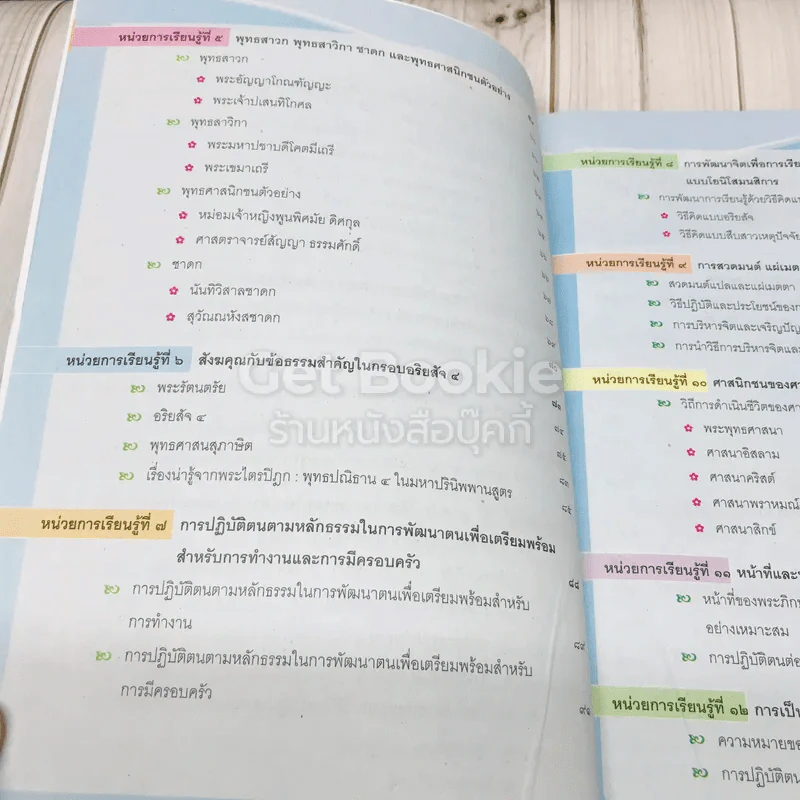 หน่วยการเรียนรู้ที่ ๕ พุทธสาวก พุทธสาวิกา ชาดก และพุทธศาสนิกชนตัวอย่าง
พุทธสาวก
พระอัญญาโกณฑัญญะ
พระเจ้าปเสนทิโกศล
พุทธสาวิกา
พระมหาปชาบดีโคตมีเถรี
พระเขมาเถรี
พุทธศาสนิกชนตัวอย่าง
หม่อมเจ้าหญิงพูนพิศมัย ดิศกุล
ศาสตราจารย์สัญญา ธรรมศักดิ์
ชาดก
นันทิวิสาลชาดก
สุวัณณหังสชาดก
หน่วยการเรียนรู้ที่ ๖ สังฆคุณกับข้อธรรมสำคัญในกรอบอริยสัจ ๔
พระรัตนตรัย
อริยสัจ ๔
พุทธศาสนสุภาษิต
เรื่องน่ารู้จากพระไตรปิฎก : พุทธปณิธาน ๔ ในมหาปรินิพพานสูตร
หน่วยการเรียนรู้ที่ ๗ การปฏิบัติตนตามหลักธรรมในการพัฒนาตนเพื่อเตรียมพร้อม
สำหรับการทำงานและการมีครอบครัว
การปฏิบัติตนตามหลักธรรมในการพัฒนาตนเพื่อเตรียมพร้อมสำหรับ
การทำงาน ๘๙
การปฏิบัติตนตามหลักธรรมในการพัฒนาตนเพื่อเตรียมพร้อมสำหรับ
การมีครอบครัว
หน่วยการเรียนรู้ที่ ๘ การพัฒนาจิตเพื่อการเรีย
แบบโยนิโสมนสิการ
การพัฒนาการเรียนรู้ด้วยวิธีคิดแบ
วิธีคิดแบบอริยสัจ
วิธีคิดแบบสืบสาวเหตุปัจจัย
หน่วยการเรียนรู้ที่ ๙ การสวดมนต์ แผ่เมต
สวดมนต์แปลและแผ่เมตตา
วิธีปฏิบัติและประโยชน์ของก
การบริหารจิตและเจริญปัญ
การนำวิธีการบริหารจิตและ
หน่วยการเรียนรู้ที่ ๑๐ ศาสนิกชนของศา
วิถีการดำเนินชีวิตของศา
พระพุทธศาสนา
ศาสนาอิสลาม
ศาสนาคริสต์
ศาสนาพราหมณ์
ศาสนาสิกข์
หน่วยการเรียนรู้ที่ ๑๑ หน้าที่และ
หน้าที่ของพระภิก
อย่างเหมาะสม
การปฏิบัติตนต่อ
หน่วยการเรียนรู้ที่ ๑๒ การเป็น
ความหมายขอ
การปฏิบัติตน
Get Bookie
ร้านหนังสือบุ๊คกี้